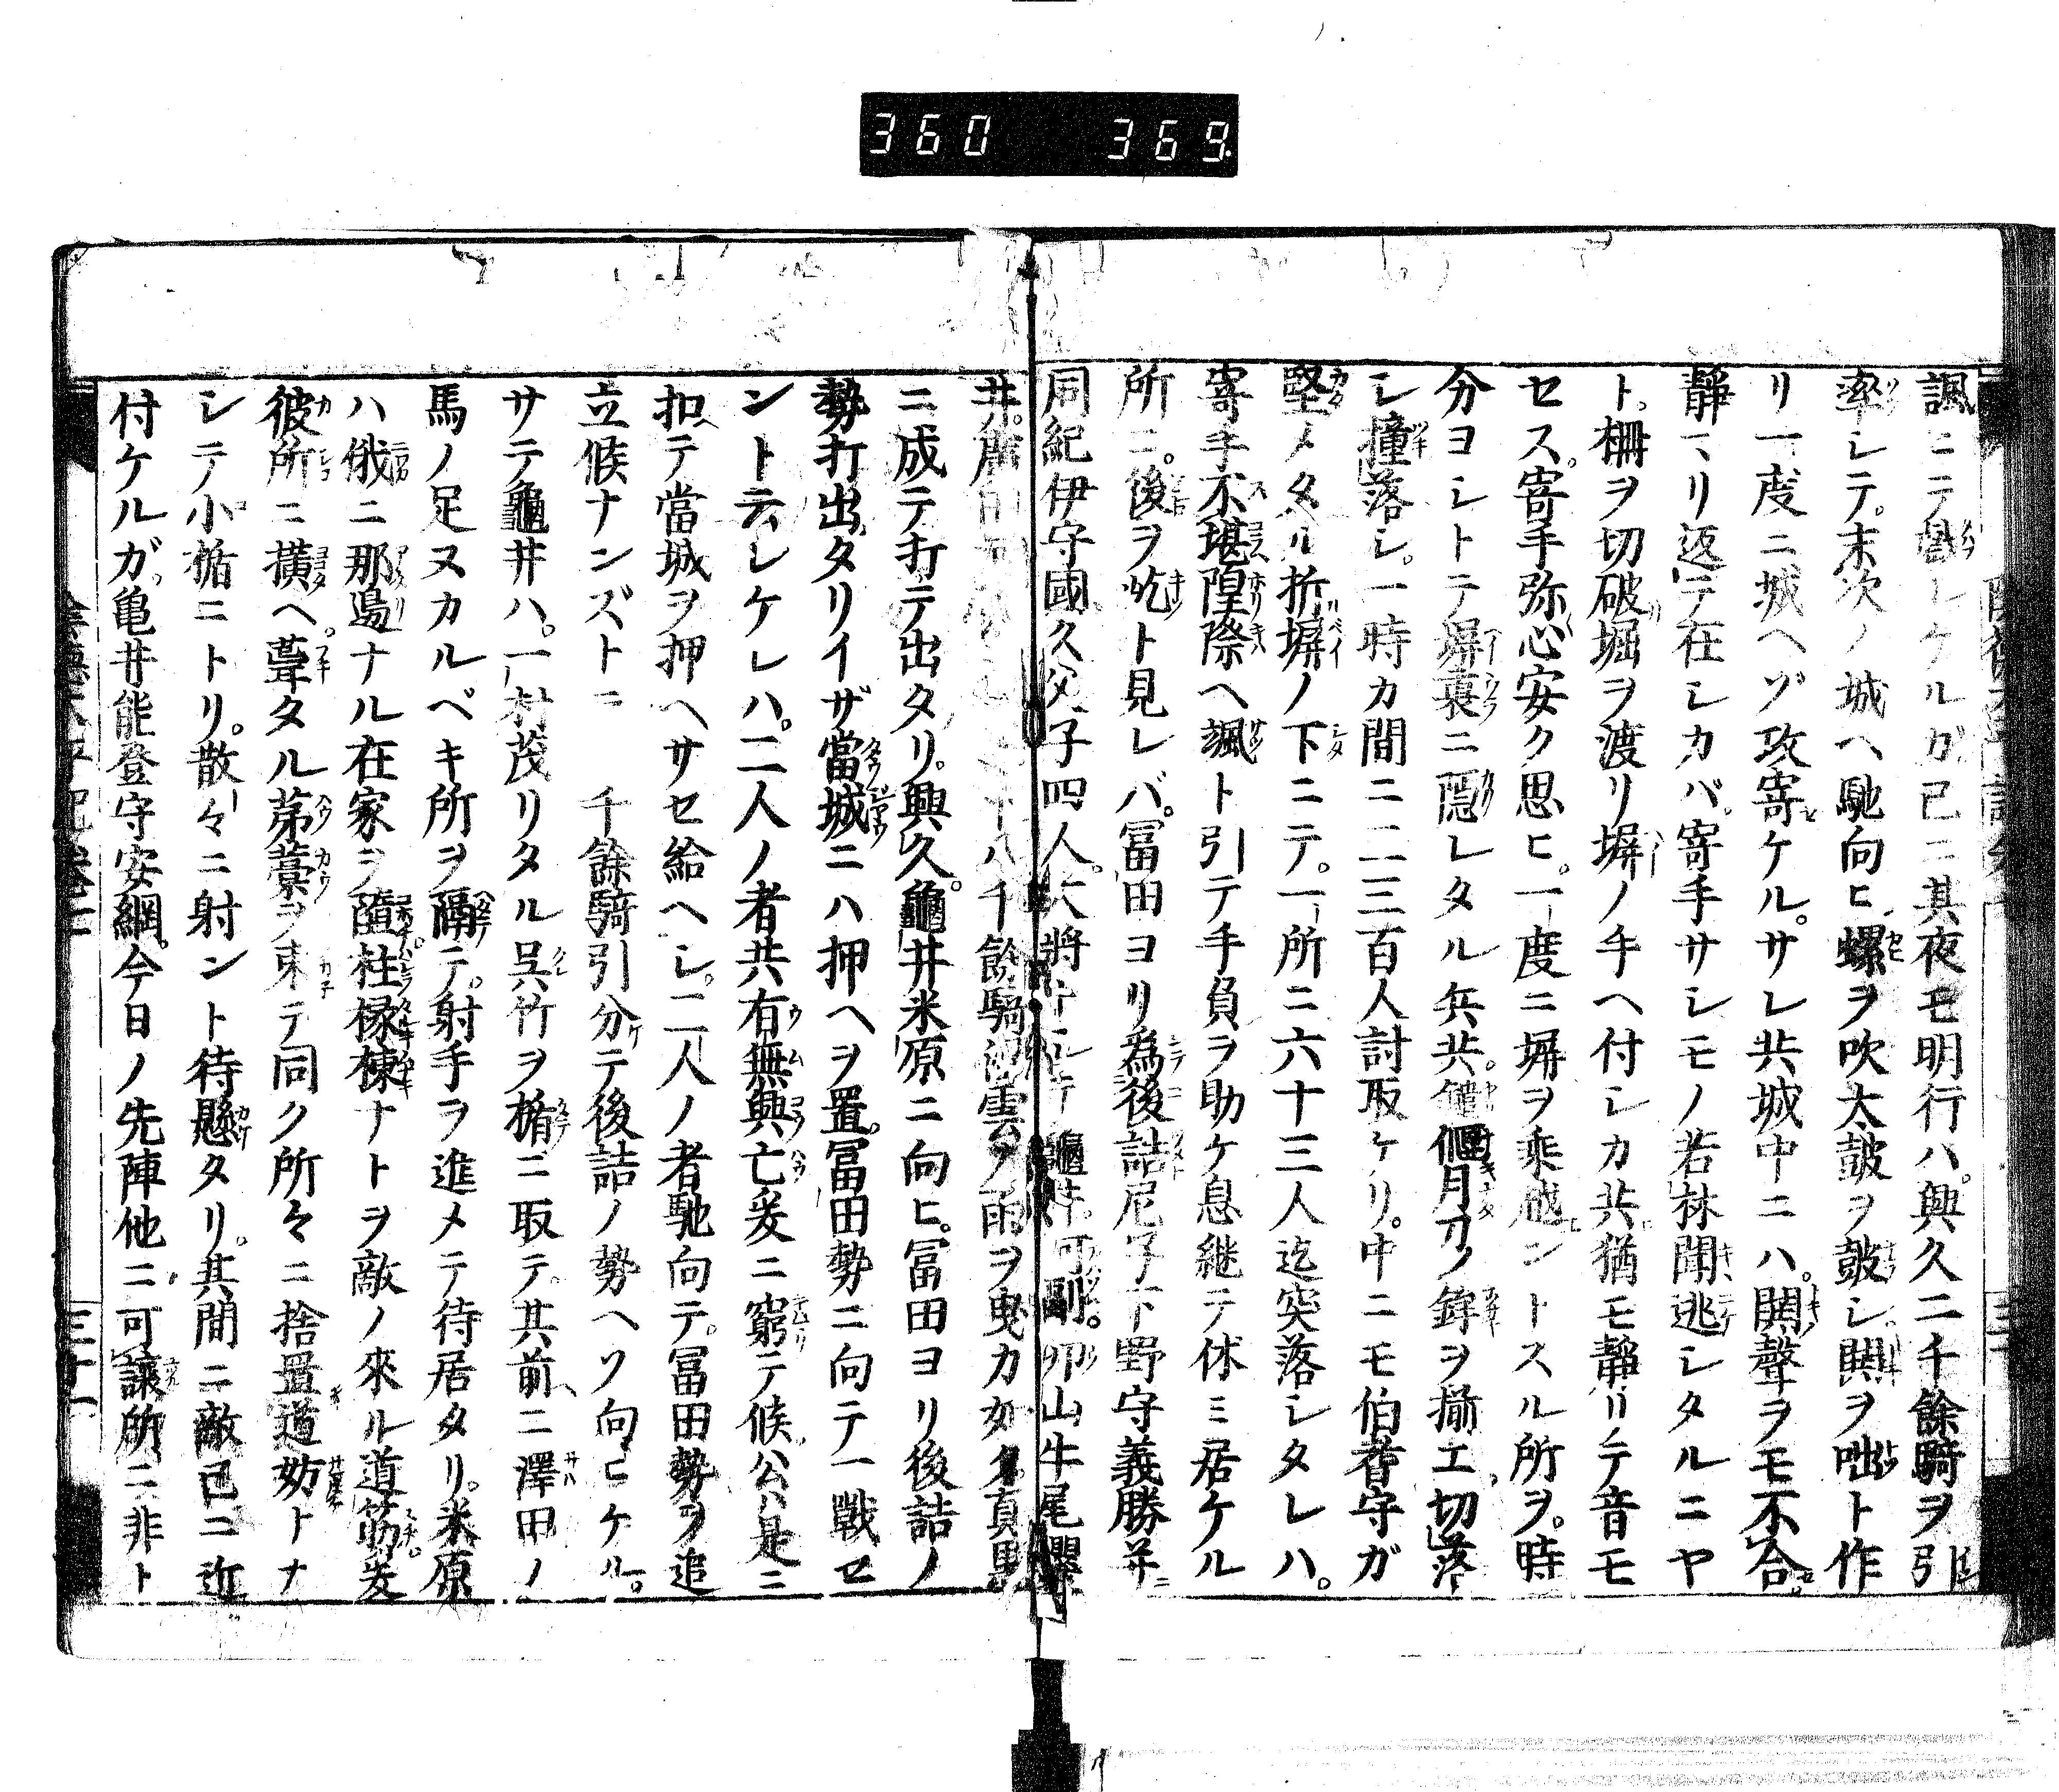 360 369
諷ニテ譽シケルガ已ニ其夜モ明行ハ。興久二千餘騎ヲ引
率シテ。末次ノ城ヘ馳向ヒ螺ヲ吹太皷ヲ皷シ鬨ヲ咄ト作
リ一度ニ城ヘゾ攻寄ケル。サレ共城中ニハ。鬨聲ヲモ不合
靜マリ返テ在シカバ。寄手サシモノ若林聞逃シタルニヤ
ト。柵ヲ切破堀ヲ渡リ塀ノ手ヘ付シカ共猶モ靜リテ音モ
セス。寄手弥心安ク思ヒ。一度ニ塀ヲ乘越ントスル所ヲ。時
分ヨシトテ塀裏ニ隱レタル兵共。鑓偃月刀ノ鉾ヲ揃エ。切落
シ撞落シ。一時カ間ニ二三百人討取ケリ。中ニモ伯耆守ガ
堅メタル折塀ノ下ニテ。一所ニ六十三人迄突落シタレハ。
寄手不堪隍際ヘ颯ト引テ手負ヲ助ケ息継テ休ミ居ケル
所ニ。後ヲ屹ト見レバ。冨田ヨリ為後詰尼子下野守義勝并ニ
同紀伊守國久父子四人。大將ニテ龜井。河副。卯山牛尾
井。八千餘騎雲ノ雨ヲ曳カ如ク。真黒
ニ成テ打テ出タリ。興久。龜井米原ニ向ヒ。冨田ヨリ後詰ノ
勢打出タリイザ當城ニハ押ヘヲ置。冨田勢ニ向テ一戰セ
ントテ云レケレハ。二人ノ者共有無興亡爰ニ窮テ候公ハ是ニ
扣テ當城ヲ押ヘサセ給ヘシ。二人ノ者馳向テ。冨田勢ヲ追
立候ナンズトニ千餘騎引分テ後詰ノ勢ヘソ向ヒケル。
サテ龜井ハ。一村茂リタル呉竹ヲ楯ニ取テ。其前ニ澤田ノ
馬ノ足ヌカルベキ所ヲ隔テ。射手ヲ進メテ待居タリ。米原
ハ俄ニ那邊ナル在家ヲ隳柱椽棟ナトヲ敵ノ來ル道筋。爰
彼所ニ横ヘ。葺タル茅藁ヲ束テ同ク所々ニ捨置道妨トナ
シテ小楯ニトリ。散々ニ射ント待懸タリ。其間ニ敵已ニ近
付ケルガ。亀井能登守安綱。今日ノ先陣他ニ可讓所ニ非ト
三十一